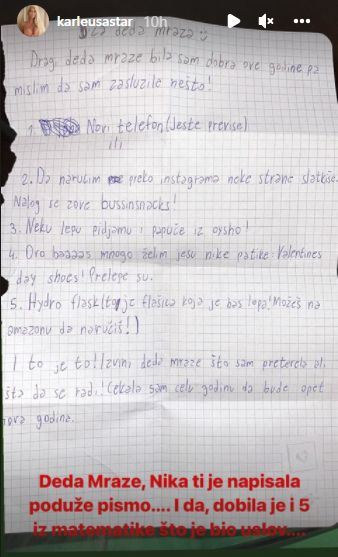 karleusastar 10h
Za deda mraza
Dragi deda mraze bila sam dobra ove godine pa
mislim da sam zaslužila nešto!
1. Novi telefon (Jeste previse)
ili
2. Da narucim preko instagrama neke strane slatkiše.
Nalog se zove bussinsnacks!
3. Neku lepu pidjamu i papuče iz oysho!
4. Ovo baaaas mnogo želim jesu nike patike Valentines
day shoes! Prelepe su.
5. Hydro flask (to je flašica koja je bas lepa! Možeš na
amazonu da naručiš!)
I to je to! Izvini deda mraze što sam preterala ali
šta da se radi! Čekala sam celu godinu da bude opet
nova godina.
Deda Mraze, Nika ti je napisala
poduže pismo.... I da, dobila je i 5
iz matematike što je bio uslov....